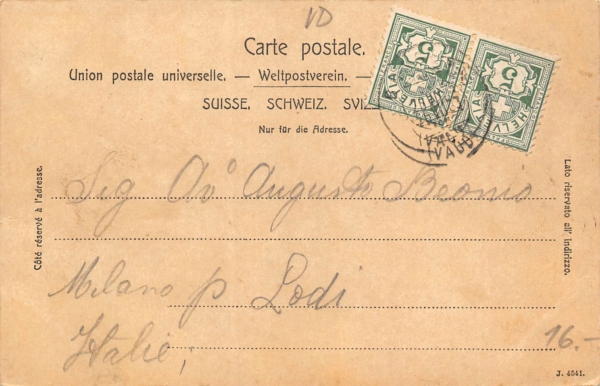 VD
Carte postale.
Union postale universelle. — Weltpostverein. —
SUISSE. SCHWEIZ. SVIZ
Nur für die Adresse.
5 HELVETIA
5 HELVETIA
(VAUD)
(VAUD)
Côté réservé à l'adresse.
Lato riservato all' indirizzo.
Sig Avo Augusto Beonio
Milano p Lodi
Italie,
16.-
J. 4541.